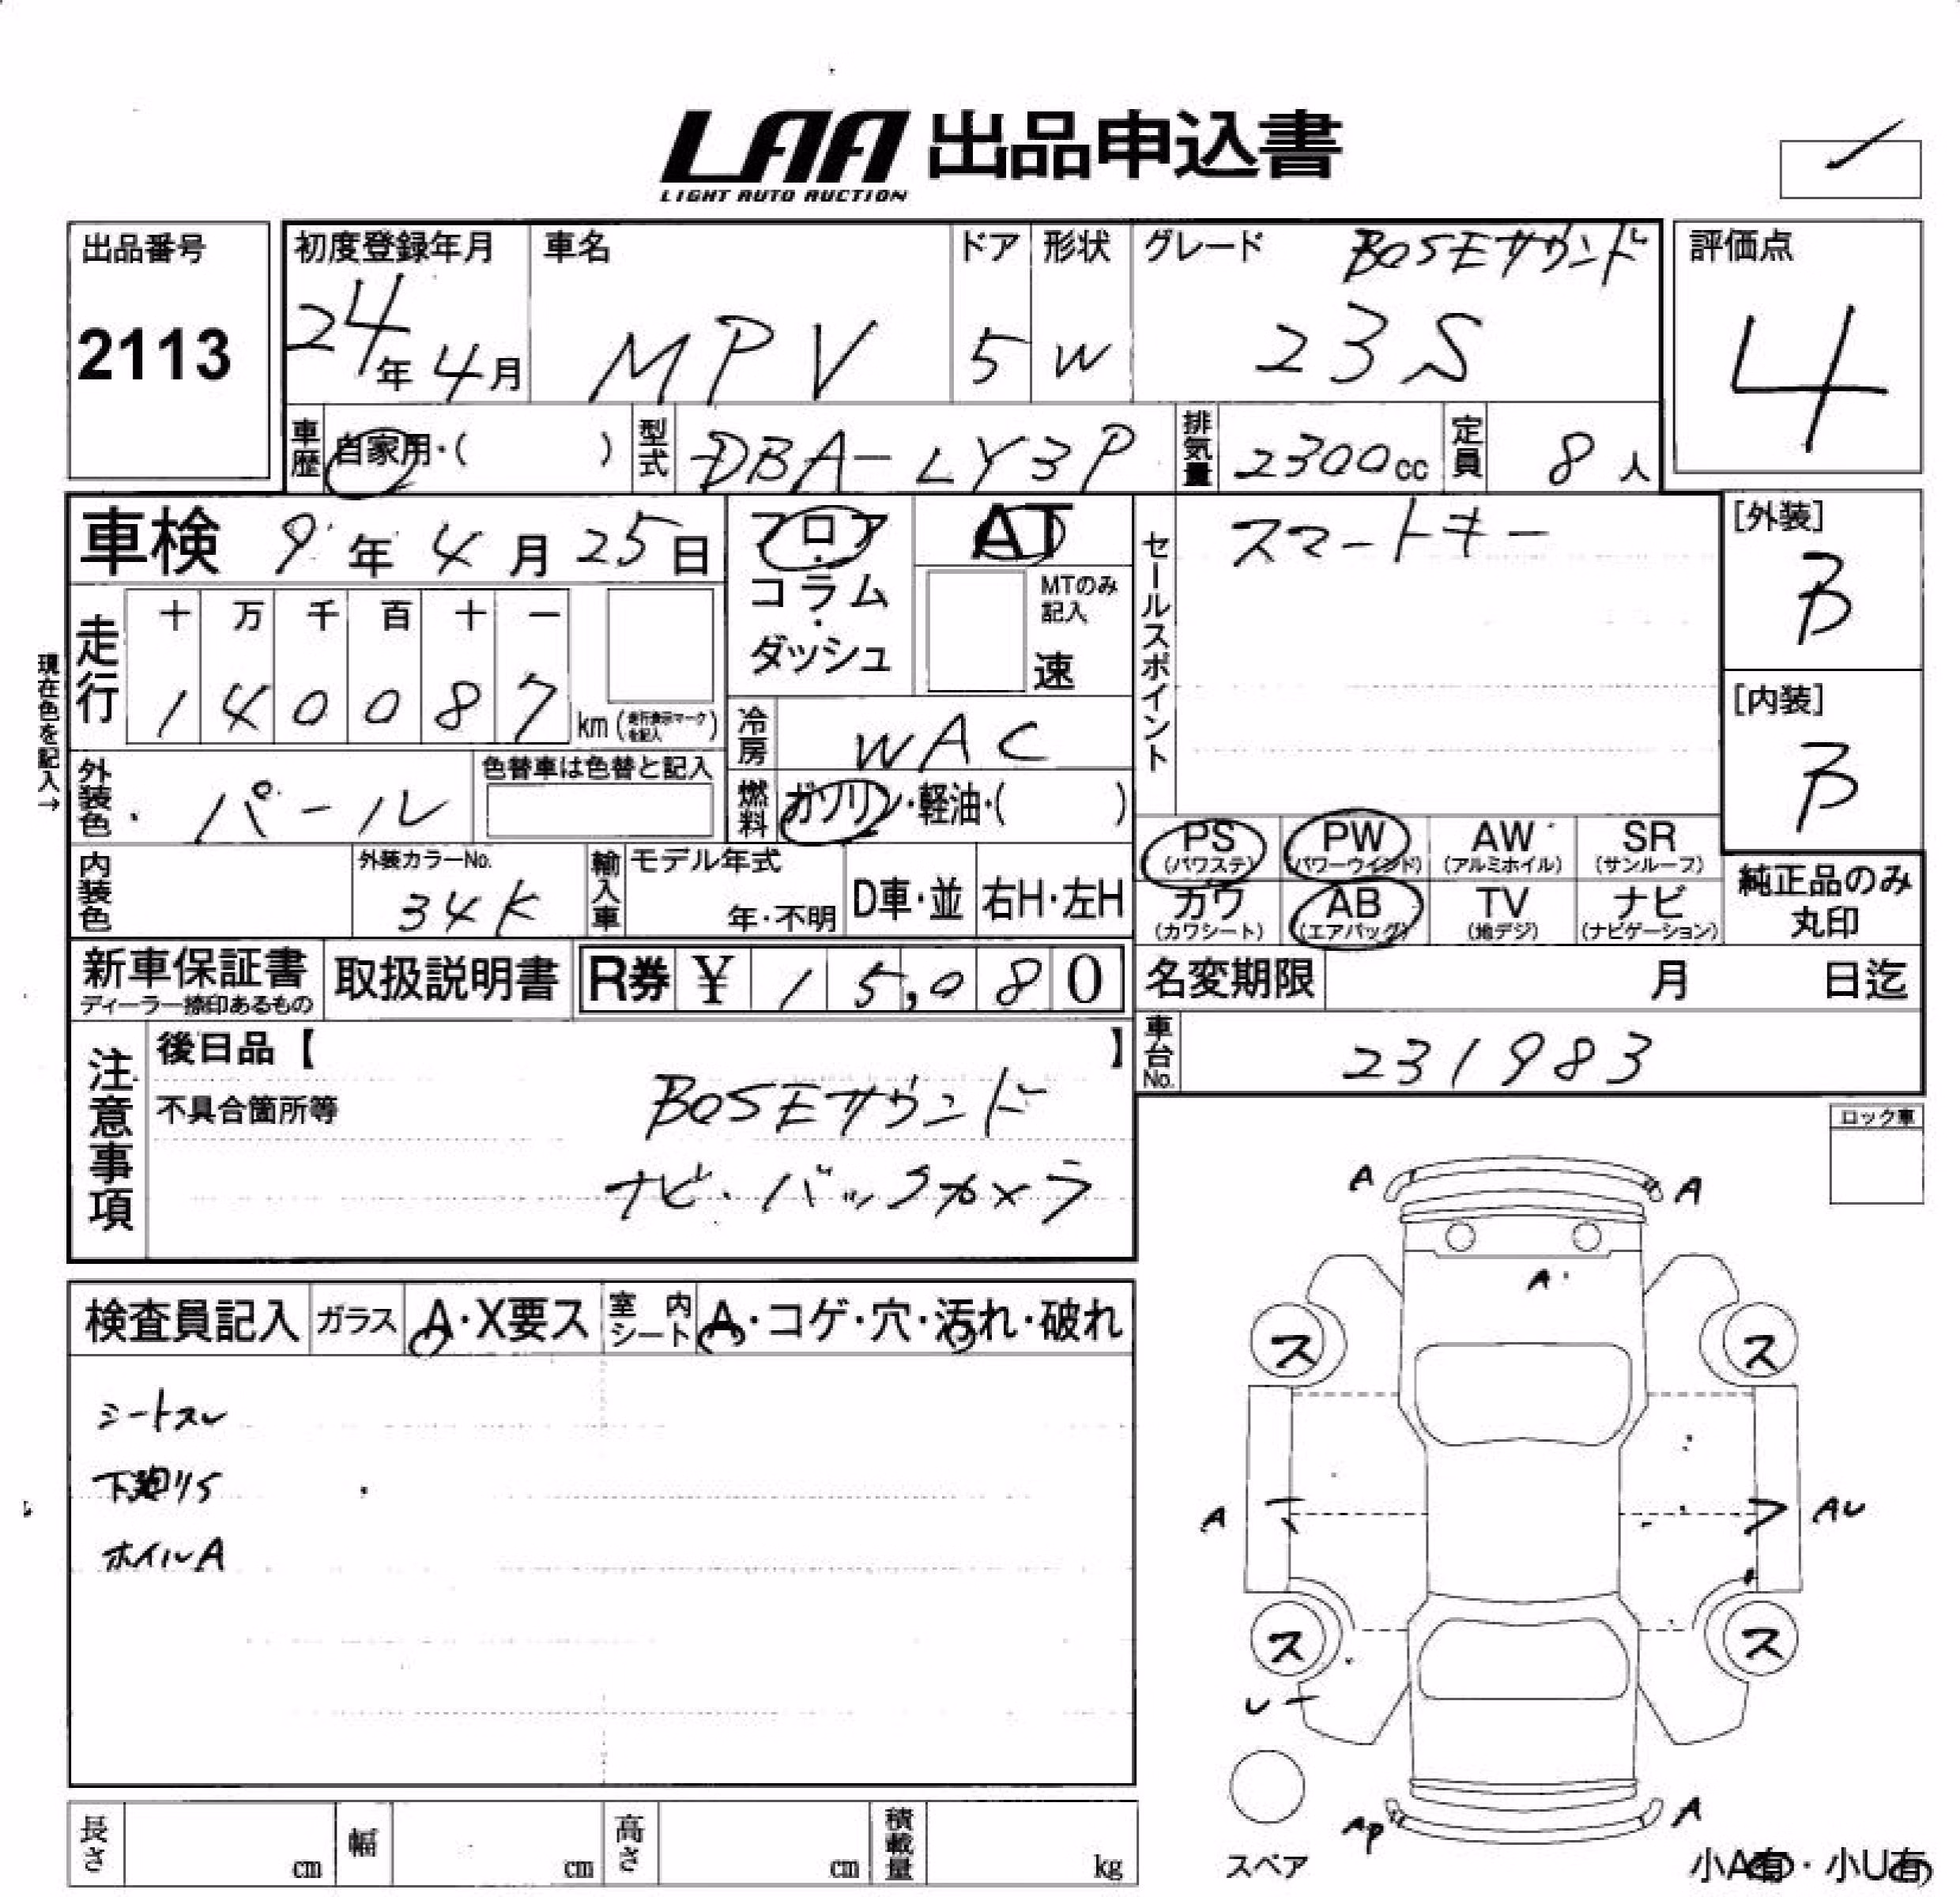 LAA 出品申込書
LIGHT AUTO AUCTION
出品番号
2113
初度登録年月
24年 4月
車名
MPV
ドア
5
形状
W
グレード
BOSEサウンド
23S
評価点
4
車歴 自家用・( )
型式 DBA-LY3P
排気量 2300cc
定員 8人
車検 9年 4月 25日
フロア・コラム・ダッシュ
AT
MTのみ記入
速
セールスポイント
スマートキー
[外装]
B
[内装]
B
現在色を記入→
走行
十 万 千 百 十 一
1 4 0 0 8 7 km (走行表示マークを記入)
冷房 WAC
外装色 パール
色替車は色替と記入
燃料 ガソリン・軽油・( )
PS (パワステ)
PW (パワーウインド)
AW (アルミホイル)
SR (サンルーフ)
カワ (カワシート)
AB (エアバッグ)
TV (地デジ)
ナビ (ナビゲーション)
純正品のみ
丸印
内装色
外装カラーNo.
34K
輸入車
モデル年式
年・不明
D車・並
右H・左H
新車保証書
ディーラー捺印あるもの
取扱説明書
R券 ¥ 15,080
名変期限 月 日迄
車台No. 231983
注意事項
後日品【 】
不具合箇所等
BOSEサウンド
ナビ・バックカメラ
ロック車
検査員記入
ガラス A・X要ス
室内シート A・コゲ・穴・汚れ・破れ
シートスレ
下廻りS
ホイルA
A A
A
ス ス
A AU
ス ス
U
AP A
スペア
小A有・小U有
長さ cm
幅 cm
高さ cm
積載量 kg